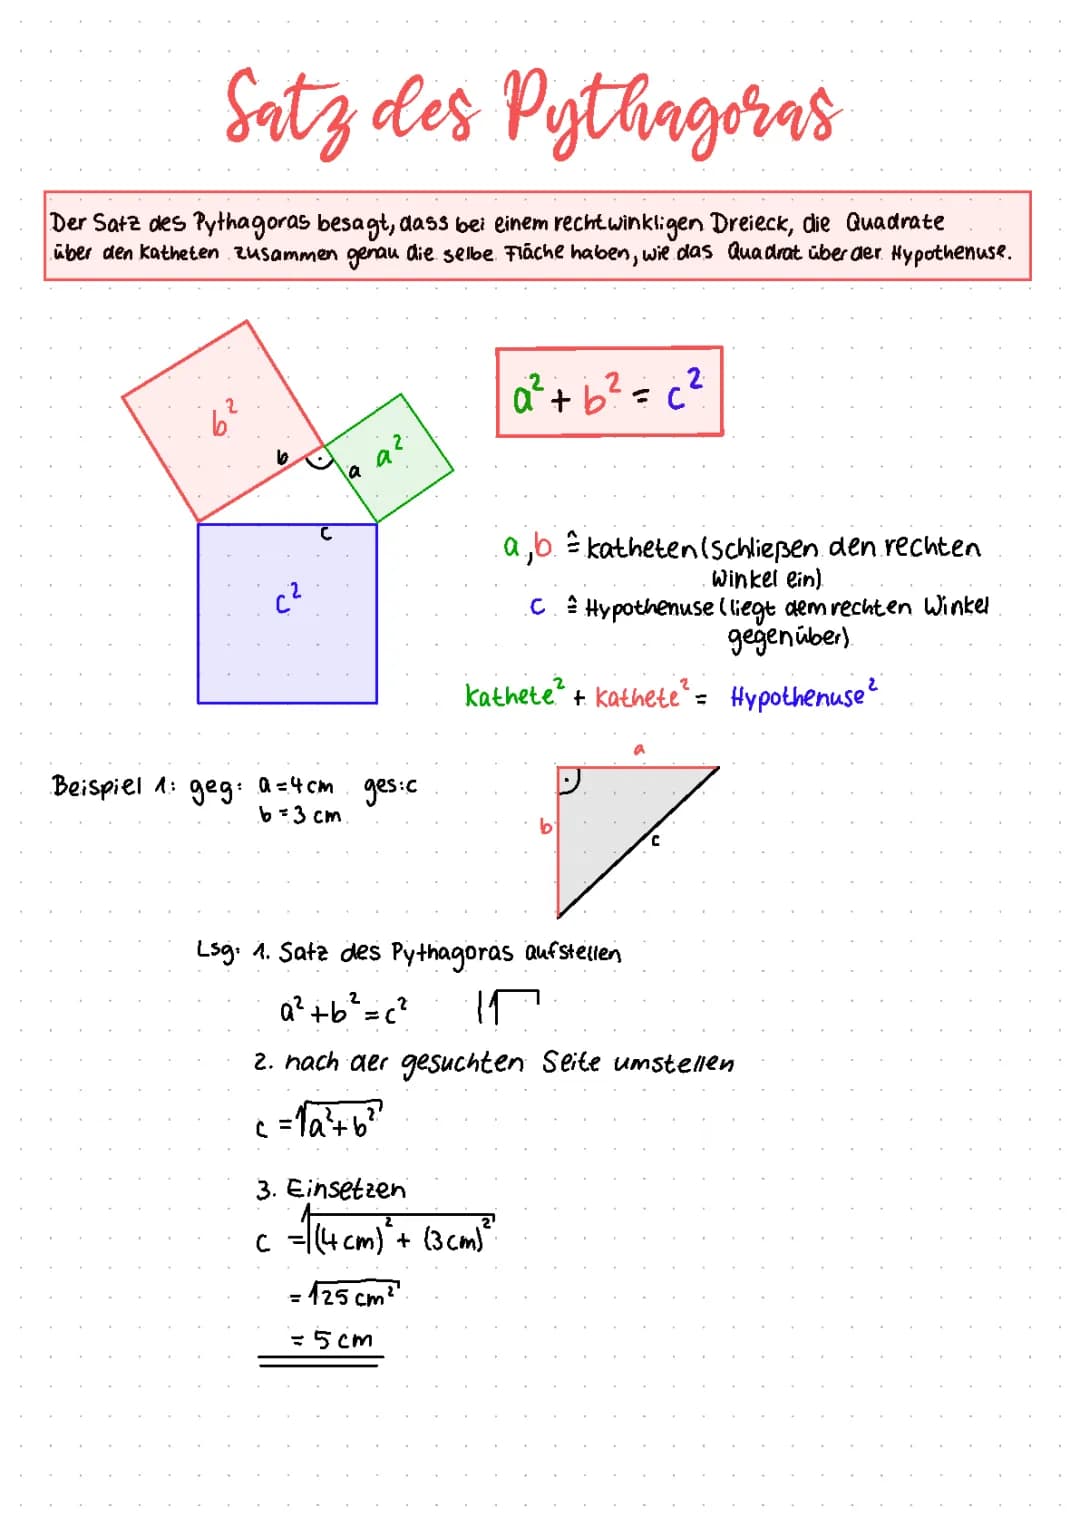 Satz des Pythagoras
Der Satz des Pythagoras besagt, dass bei einem rechtwinkligen Dreieck, die Quadrate
über den Katheten zusammen genau die selbe Fläche haben, wie das Quadrat über der Hypothenuse.
a² + b² = c²
b²
a²
b
a
c
c²
a, b ≙ Katheten (schließen den rechten
Winkel ein)
c ≙ Hypothenuse (liegt dem rechten Winkel
gegenüber)
Kathete² + Kathete² = Hypothenuse²
a
b
c
Beispiel 1: geg: a = 4 cm ges: c
b = 3 cm
Lsg: 1. Satz des Pythagoras aufstellen
a² + b² = c² |√
2. nach der gesuchten Seite umstellen
c = √(a² + b²)
3. Einsetzen
c = √((4 cm)² + (3 cm)²)
= √(25 cm²)
= 5 cm